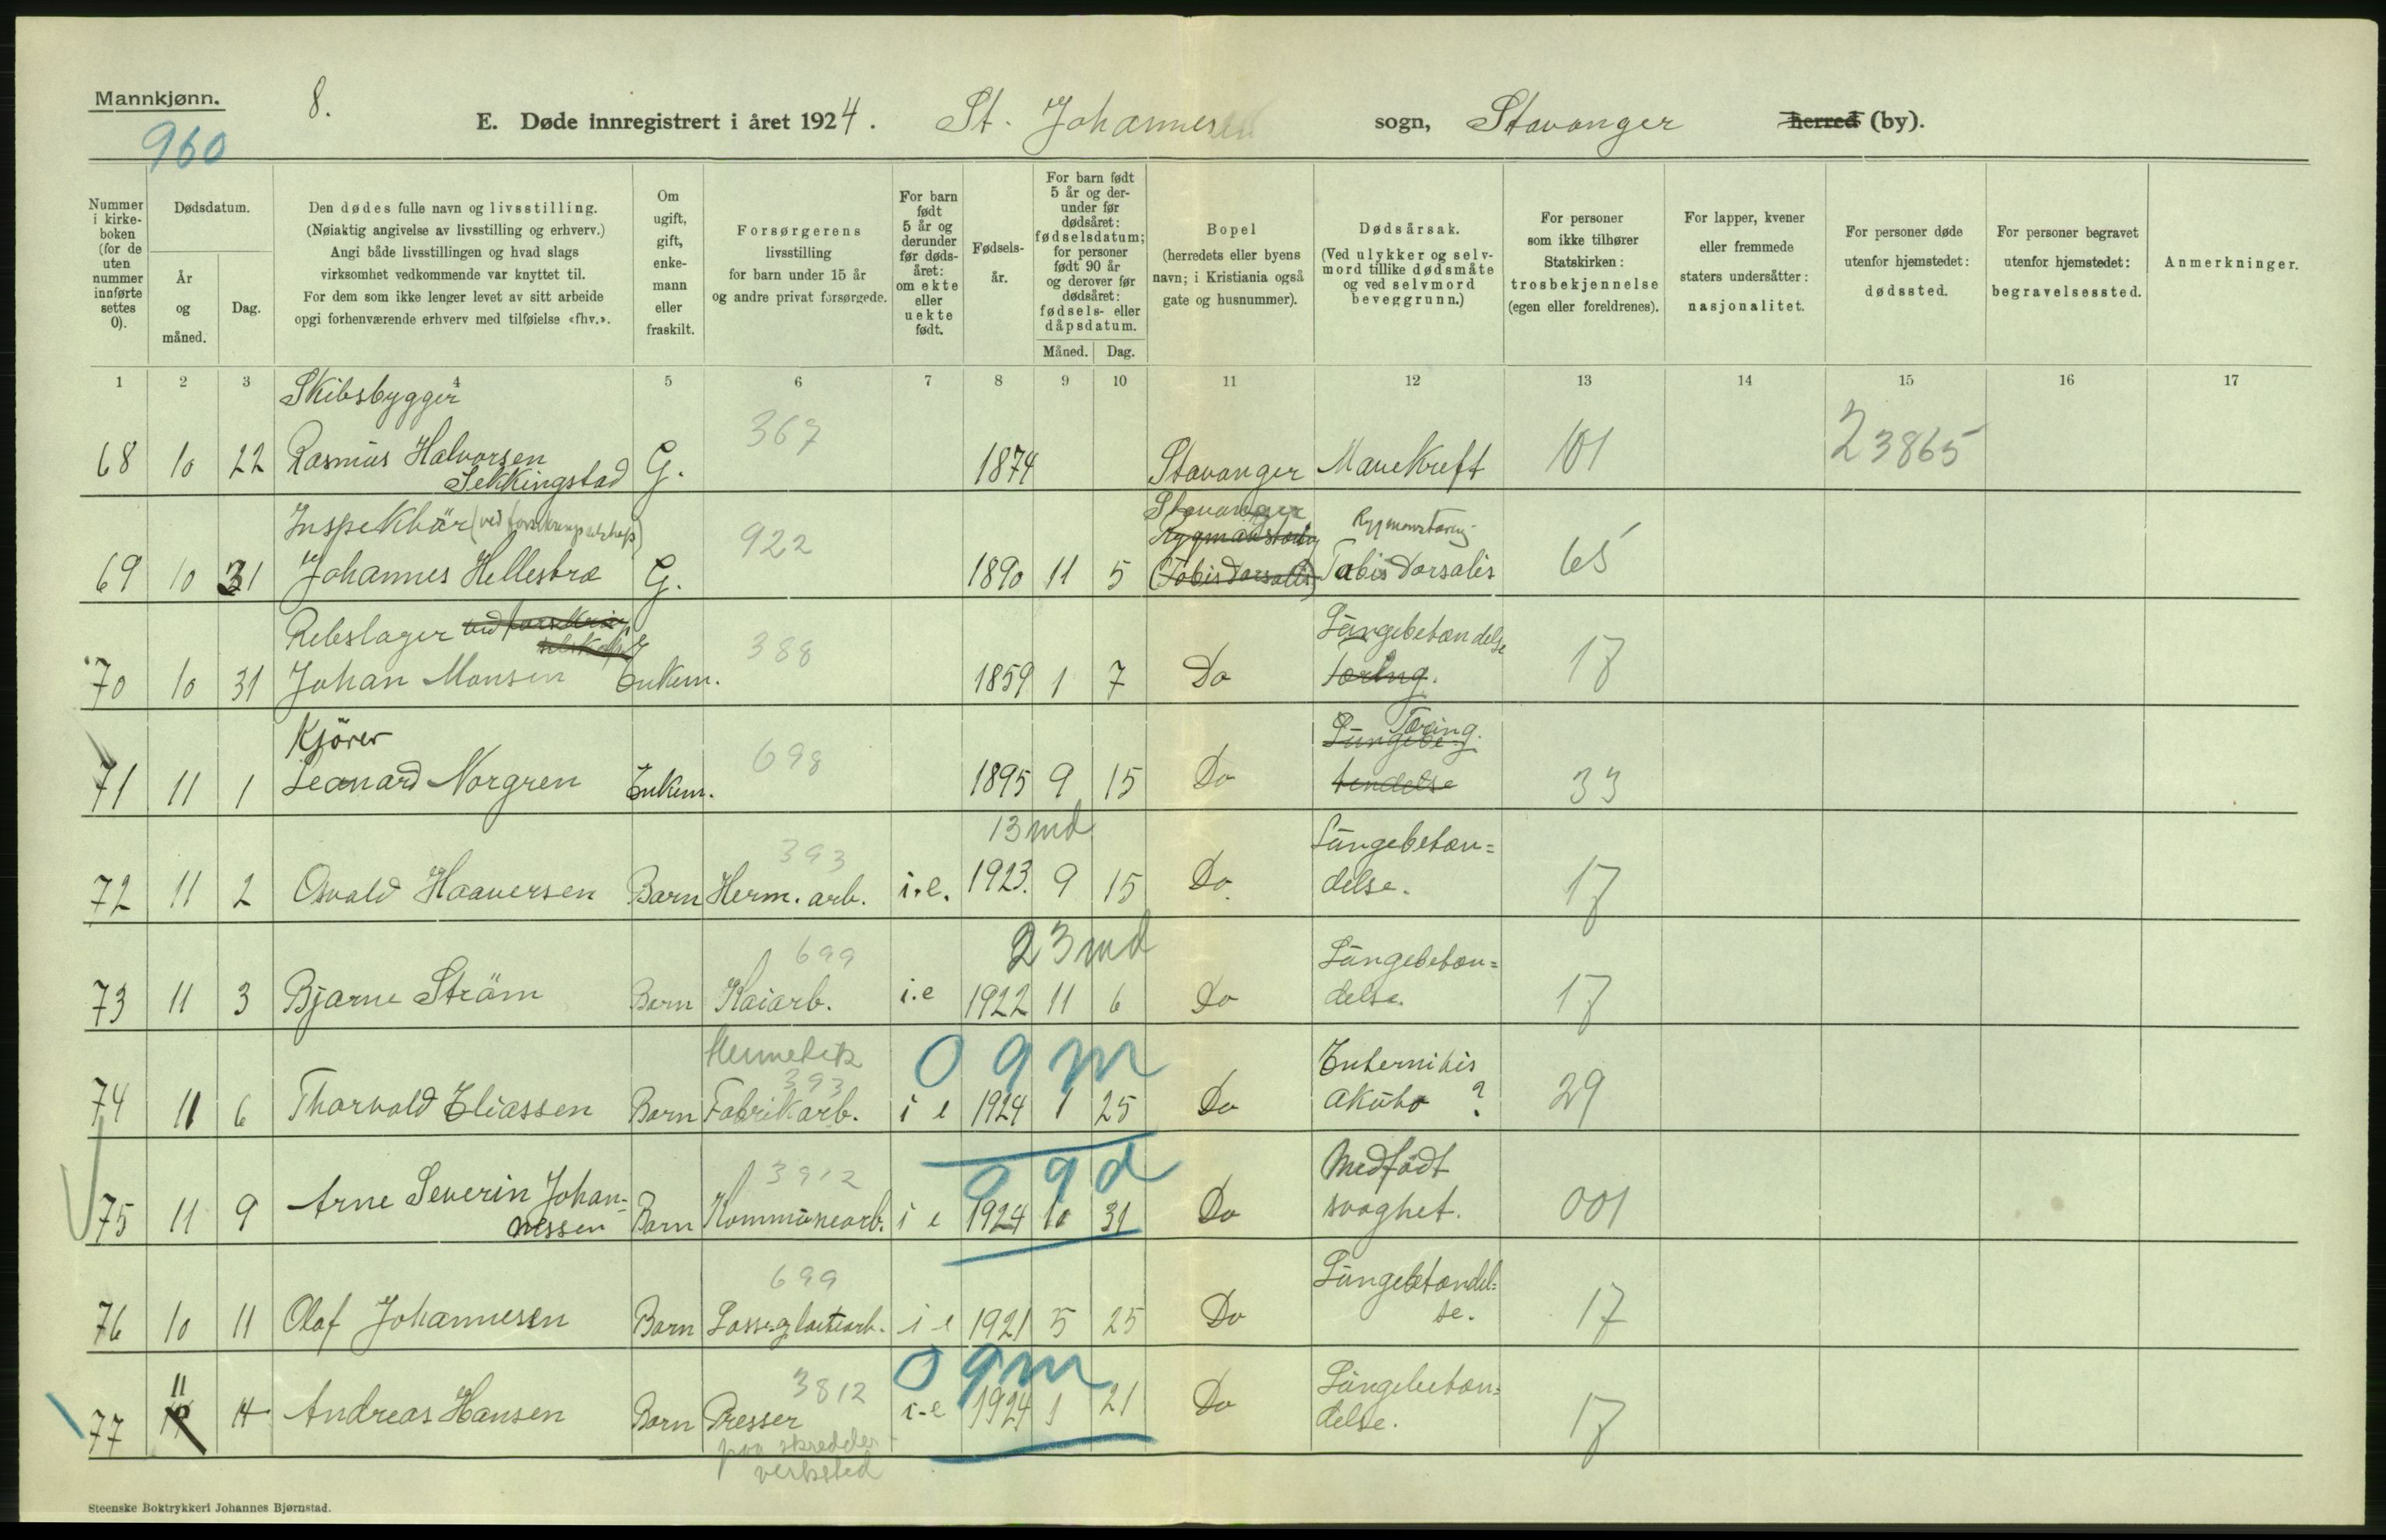 Mannkjønn.
8.
960
E. Døde innregistrert i året 1924. St. Johannes sogn, Stavanger herred (by).
Nummer i kirkeboken (for de uten nummer innførte settes 0).
Dødsdatum.
År og måned.
Dag.
Den dødes fulle navn og livsstilling.
(Nøiaktig angivelse av livsstilling og erhverv.)
Angi både livsstillingen og hvad slags
virksomhet vedkommende var knyttet til.
For dem som ikke lenger levet av sitt arbeide
opgi forhenværende erhverv med tilføielse «fhv.».
Om ugift, gift, enkemann eller fraskilt.
Forsørgerens livsstilling for barn under 15 år og andre privat forsørgede.
For barn født 5 år og derunder før dødsåret: om ekte eller uekte født.
Fødselsår.
For barn født 5 år og derunder før dødsåret: fødselsdatum; for personer født 90 år og derover før dødsåret: fødsels- eller dåpsdatum.
Måned. Dag.
Bopel
(herredets eller byens navn; i Kristiania også gate og husnummer).
Dødsårsak.
(Ved ulykker og selvmord tillike dødsmåte og ved selvmord beveggrunn.)
For personer som ikke tilhører Statskirken: trosbekjennelse (egen eller foreldrenes).
For lapper, kvener eller fremmede staters undersåtter: nasjonalitet.
For personer døde utenfor hjemstedet: dødssted.
For personer begravet utenfor hjemstedet: begravelsessted.
Anmerkninger.
1 2 3 4 5 6 7 8 9 10 11 12 13 14 15 16 17
Skibsbygger
367
68 10 22 Rasmus Halvorsen G. 1874 Stavanger Mavekreft 101 23865
Sekkingstad
Inspektør (ved forsikringselskap) 922 Stavanger Rygmarvstæring
Rygmarvstæring
69 10 31 Johannes Hellesbra G. 1890 11 5 (Tabis dorsalis) Tabis dorsalis 65
Rebslager ved forsikrings Lungebetændelse
selskap 388
70 10 31 Johan Monsen Enkem. 1859 1 7 Do Tæring. 17
Kjörer 698 Tæring.
Lungebe-
71 11 1 Leonard Norgren Enkem. 1895 9 15 Do tendelse 33
393 13 md Lungebetæn=
72 11 2 Osvald Haaversen Barn Herm. arb. i.e. 1923. 9 15 Do. delse. 17
699 23 md Lungebetæn=
73 11 3 Bjarne Ström Barn Kaiarb. i.e 1922 11 6 Do delse. 17
Hermetik 0 9 m Enternitis
393
74 11 6 Thorvald Eliassen Barn Fabrikarb. i e 1924 1 25 Do akuta ? 29
3912 0 9 d Medfödt
75 11 9 Arne Severin Johan- Barn Kommunearb. i e 1924 10 31 Do svaghet. 001
nessen
699 Lungebetændel=
76 10 11 Olaf Johannesen Barn Losse- i e 1921 5 25 Do se. 17
11 3812 0 9 m Lungebetæn=
77 14 Andreas Hansen Barn Presser i-e 1924 1 21 Do delse. 17
paa skredder-
verksted
Steenske Boktrykkeri Johannes Bjørnstad.